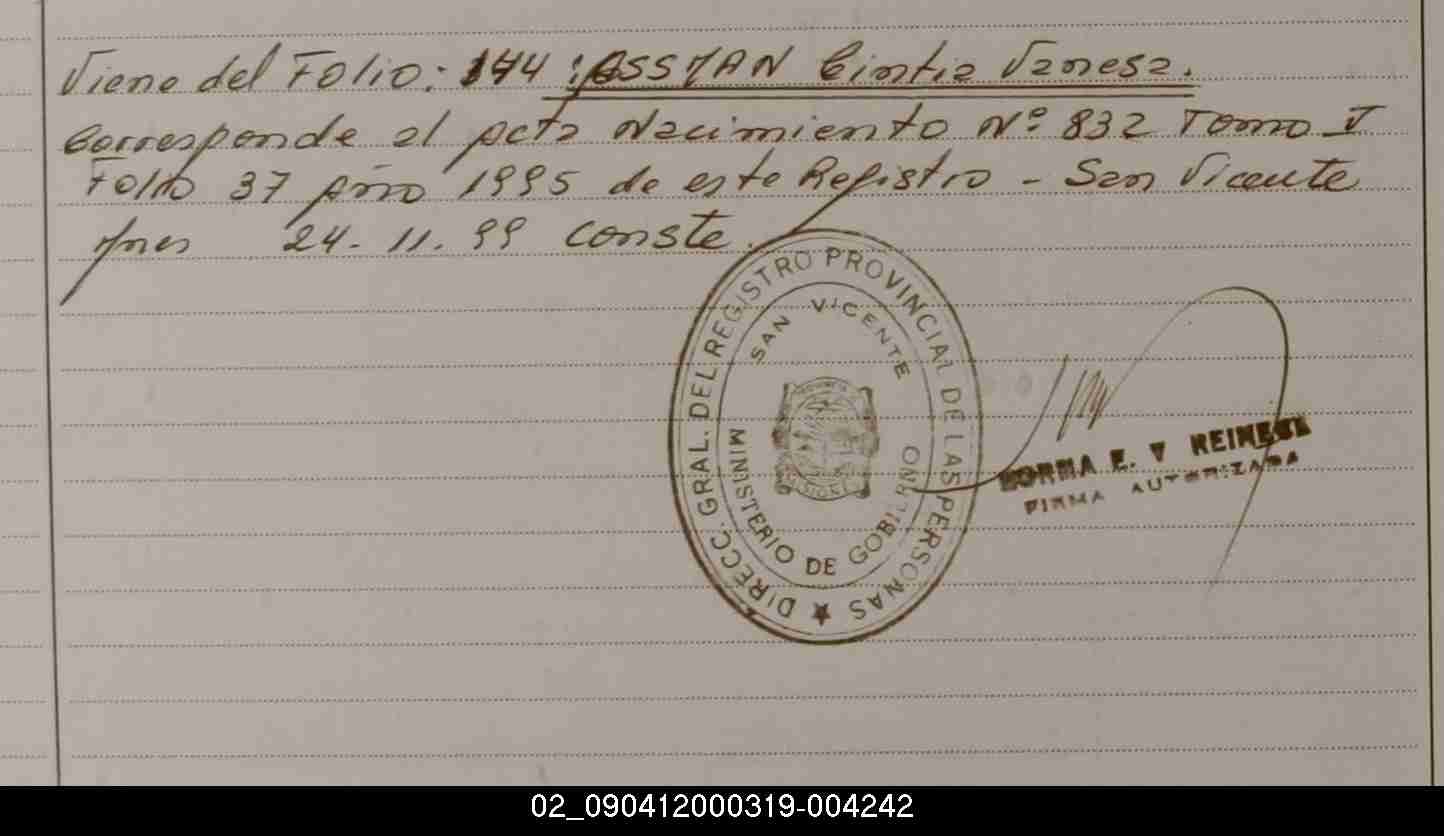 Viene del Folio: 144 : ASSMAN Cintia Vanesa.
Corresponde al Acta Nacimiento Nº 832 Tomo V
Folio 37 Año 1995 de este Registro - San Vicente
Mnes 24-11-99 Conste.
DIRECC. GRAL. DEL REGISTRO PROVINCIAL DE LAS PERSONAS
SAN VICENTE
MINISTERIO DE GOBIERNO
MISIONES
NORMA E. V REINEZ
FIRMA AUTORIZADA
02_090412000319-004242